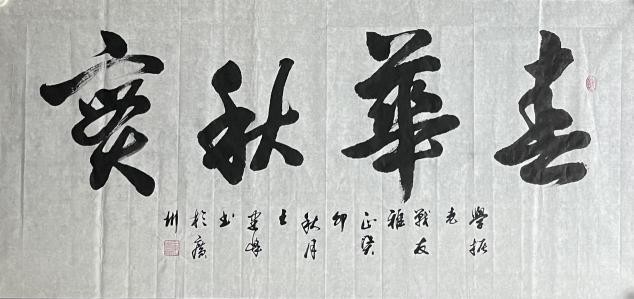 春華秋實
學振
老
戰友
雅
正癸
卯
秋月
書
於廣
州